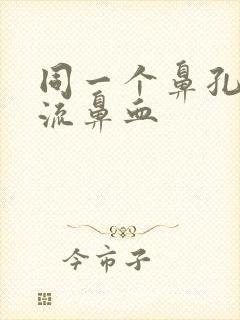 同一个鼻孔
流鼻血
今市子